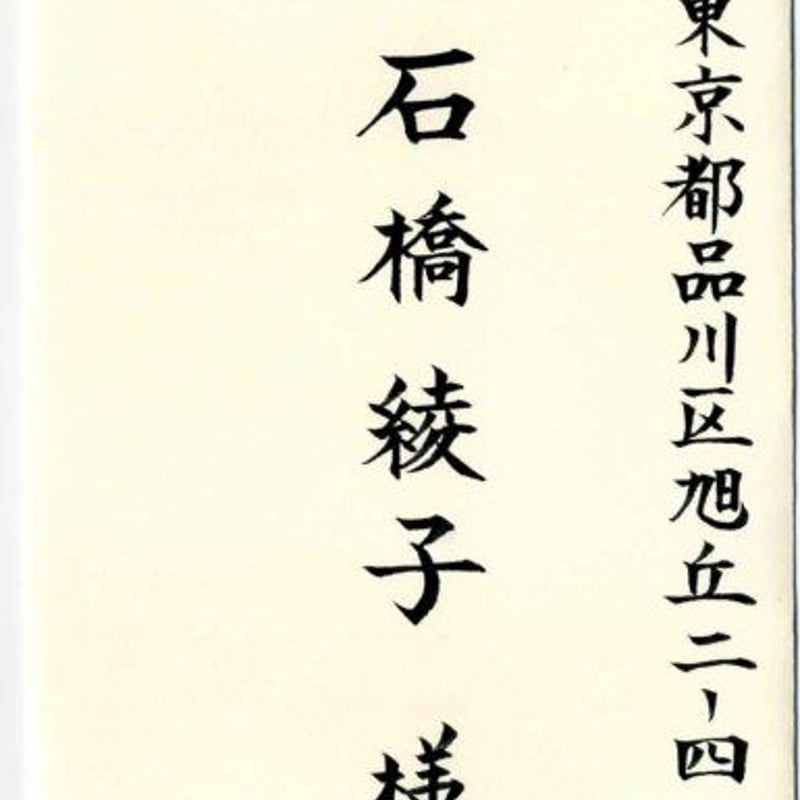 東京都品川区旭丘二-四
石橋綾子様